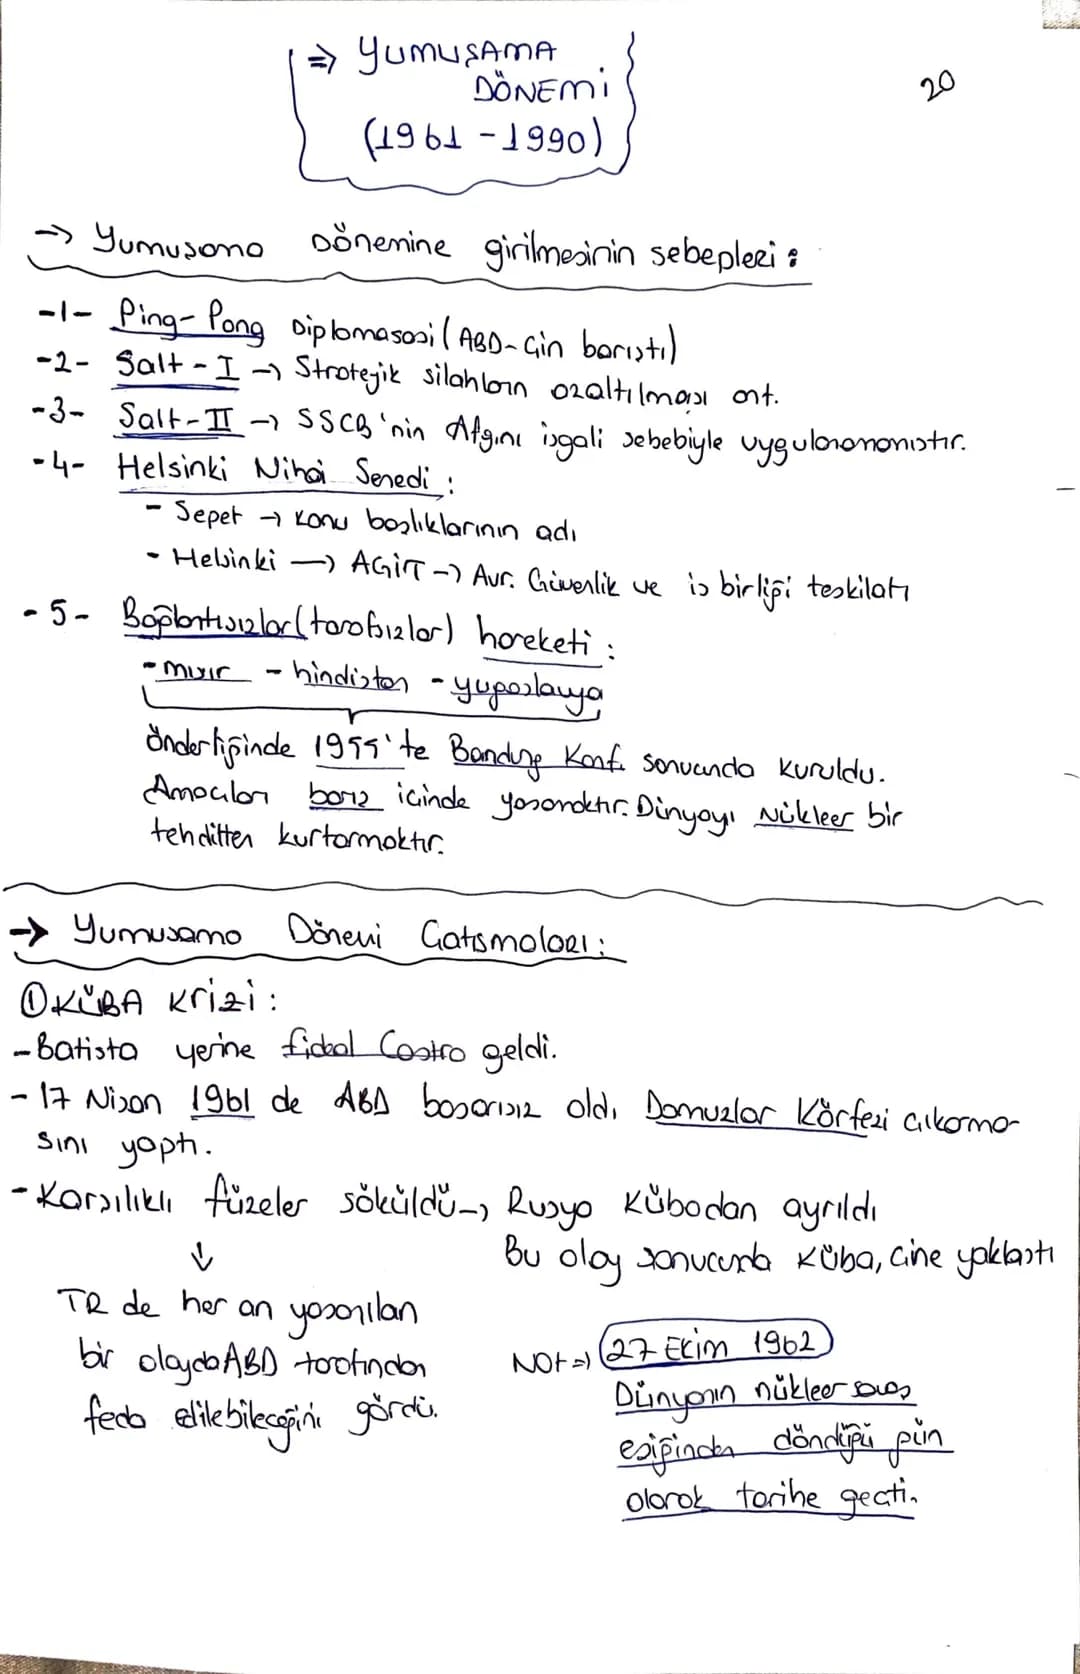 ⇒ YUMUŞAMA
DÖNEMİ
(1961 - 1990)
20
→ Yumuşama Dönemine girilmesinin sebepleri :
-1- Ping-Pong Diplomasisi (ABD-Çin barıştı)
-2- Salt-I → Stratejik silahların azaltılması ant.
-3- Salt-II → SSCB'nin Afganı işgali sebebiyle uygulanamamıştır.
-4- Helsinki Nihai Senedi :
- Sepet → Konu başlıklarının adı
- Helsinki → AGİT → Avr. Güvenlik ve iş birliği teşkilatı
-5- Bağlantısızlar (tarafsızlar) hareketi :
- mısır - hindistan - yugoslavya
önderliğinde 1955'te Bandung Konf. sonucunda kuruldu.
Amaçları barış içinde yaşamaktır. Dünyayı Nükleer bir
tehditten kurtarmaktır.
→ Yumuşama Dönemi Çatışmaları :
① KÜBA Krizi :
- Batista yerine fidel Castro geldi.
- 17 Nisan 1961 de ABD başarısız oldı Domuzlar Körfezi çıkarma
sını yaptı.
- Karşılıklı füzeler söküldü → Rusya Kübadan ayrıldı
Bu olay sonucunda Küba, Çine yaklaştı
↓
TR de her an yaşanılan
bir olayda ABD tarafından
feda edilebileceğini gördü.
NOT ⇒ 27 Ekim 1962
Dünyanın nükleer savaş
eşiğinden döndüğü gün
olarak tarihe geçti.